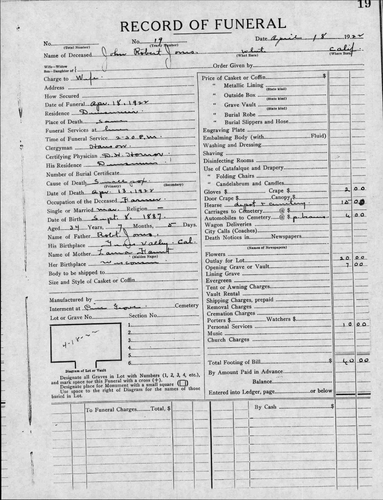 19
RECORD OF FUNERAL
No. No. 19 Date April 18 1922
(Total Number) (Yearly Number)
Name of Deceased John Robert Jones. White Calif
(What Race) (Where Born)
Wife—Widow
Son—Daughter of Order Given by
Charge to Wife
Address
How Secured
Date of Funeral Apr. 18, 1922
Residence Dunsmuir
Place of Death Same
Funeral Services at home
Time of Funeral Service 2:30 P.M.
Clergyman
Certifying Physician
His Residence Dunsmuir
Number of Burial Certificate
Cause of Death Smallpox
(Primary) (Secondary)
Date of Death Apr 13, 1922
Occupation of the Deceased Farmer
Single or Married mar Religion
Date of Birth Sept 8, 1887.
Aged 34 Years 7 Months 5 Days
Name of Father Robt Jones.
His Birthplace Valley Cal.
Name of Mother
(Maiden Name)
Her " Wisconsin
Body to be shipped to
Size and Style of Casket or Coffin
Manufactured by
Interment at Pine Grove Cemetery
Lot or Grave No. Section No.
4-18-22
1.
2.
3.
4.
5.
6.
7.
Diagram of Lot or Vault
Designate all Graves in Lot with Numbers (1, 2, 3, 4, etc.), and mark space for this Funeral with a cross (+).
Designate place for Monument with a small square
Use space to the right of Diagram for the names of those buried in Lot.
Price of Casket or Coffin
" Metallic Lining
(State kind)
" Outside Box
(State kind)
" Grave Vault
(State kind)
" Burial Robe
" Burial Slippers and Hose
Engraving Plate
Embalming Body (with Fluid)
Washing and Dressing
Shaving
Disinfecting Rooms
Use of Catafalque and Drapery
" Folding Chairs
" Candelabrum and Candles
Gloves $ Crape $ 2 00
Door Crape $ Camphor $
Hearse depot & cemetery 15 00
Carriages to Cemetery @ $
Automobiles to Cemetery @ $ 4 00
Wagon Deliveries
City Calls (Coaches)
Death Notices in Newspapers
(Names of Newspapers)
Flowers
Outlay for Lot 20 00
Opening Grave or Vault 7 00
Lining Grave
Evergreen
Tent or Awning Charges
Vault Rental
Shipping Charges, prepaid
Removal Charges
Cremation Charges
Porters $ Watchers $
Personal Services 10 00
Music
Church Charges
Total Footing of Bill $ 60 00
By Amount Paid in Advance
Balance
Entered into Ledger, page or below
To Funeral Charges, Total $
By Cash $